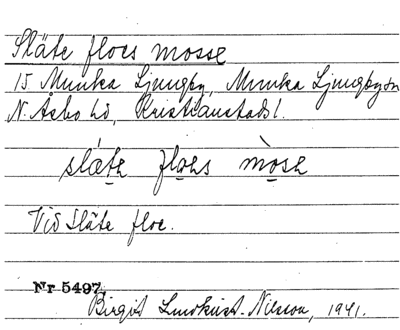 Släte floes mosse
15 Munka Ljungby, Munka Ljungby sn
N. Åsbo hd, Kristianstads l.
slæ̀te floes mòse
Vid Släte floe.
Nr 5497.
Birgit Lindkvist-Nilsson, 1941.